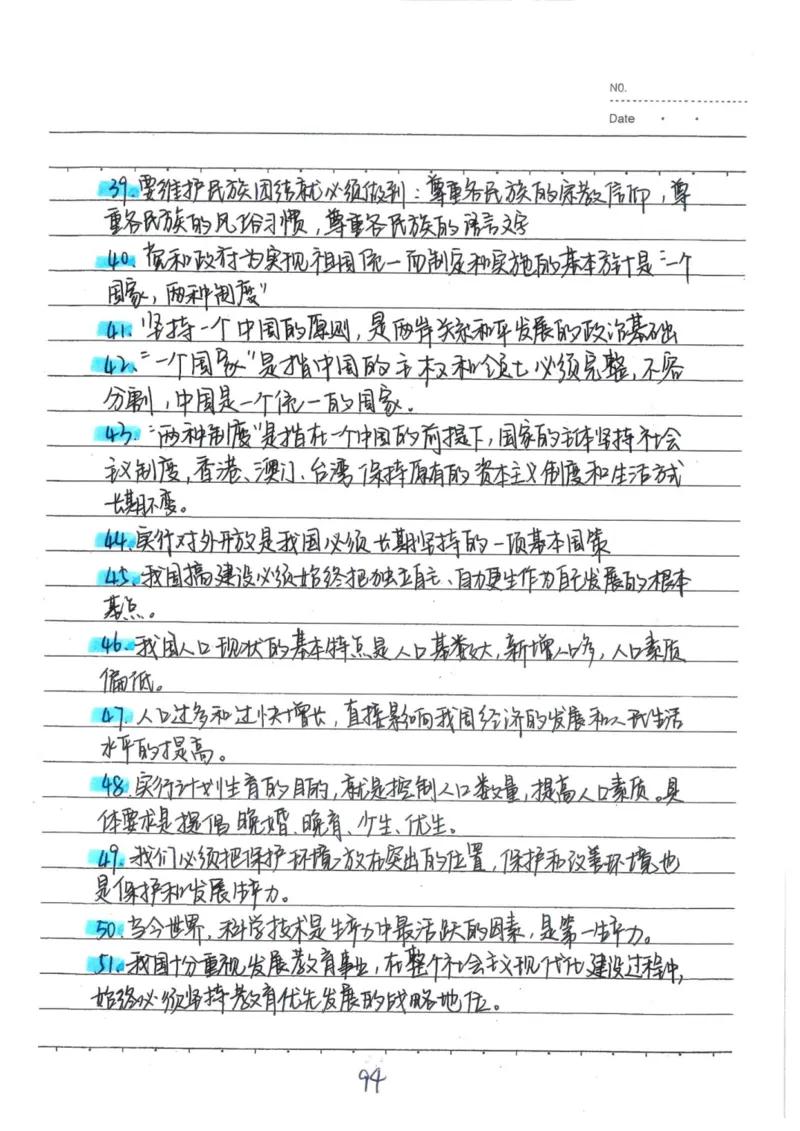 NO.
Date
39.要维护民族团结就必须做到：尊重各民族的宗教信仰，尊
重各民族的风俗习惯，尊重各民族的语言文字
40.党和政府为实现祖国统一而制定和实施的基本方针是“一个
国家，两种制度”
41.坚持一个中国的原则，是两岸关系和平发展的政治基础
42.“一个国家”是指中国的主权和领土必须完整，不容
分割，中国是一个统一的国家。
43.“两种制度”是指在一个中国的前提下，国家的主体坚持社会
主义制度，香港、澳门、台湾保持原有的资本主义制度和生活方式
长期不变。
44.实行对外开放是我国必须长期坚持的一项基本国策
45.我国搞建设必须始终把独立自主、自力更生作为自己发展的根本
基点。
46.我国人口现状的基本特点是人口基数大，新增人口多，人口素质
偏低。
47.人口过多和过快增长，直接影响我国经济的发展和人民生活
水平的提高。
48.实行计划生育的目的，就是控制人口数量，提高人口素质。具
体要求是提倡晚婚、晚育、少生、优生。
49.我们必须把保护环境放在突出的位置，保护和改善环境也
是保护和发展生产力。
50.当今世界，科学技术是生产力中最活跃的因素，是第一生产力。
51.我国十分重视发展教育事业，在整个社会主义现代化建设过程中，
始终必须坚持教育优先发展的战略地位。
94